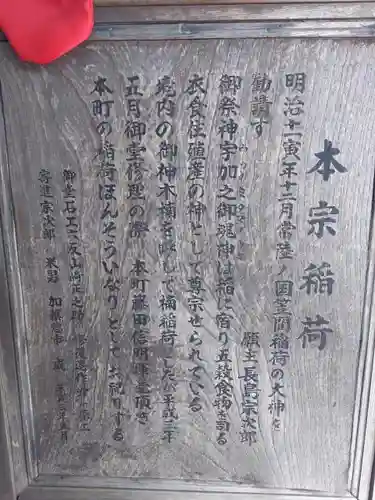 本宗稲荷
明治十一寅年十二月常陸ノ国笠間稲荷の大神を
勧請す
願主 長島宗次郎
御祭神宇加之御魂神は稲に宿り五穀食物を司る
衣食住殖産の神として尊宗せられている
境内の御神木楠を称して楠稲荷 平成三年
五月御堂修理の際 本町 篠田信明 頂き
本町の稲荷ほんそういなりとしてお祀りする
御堂 石工 山崎正之助
寄進 宗次郎 米男